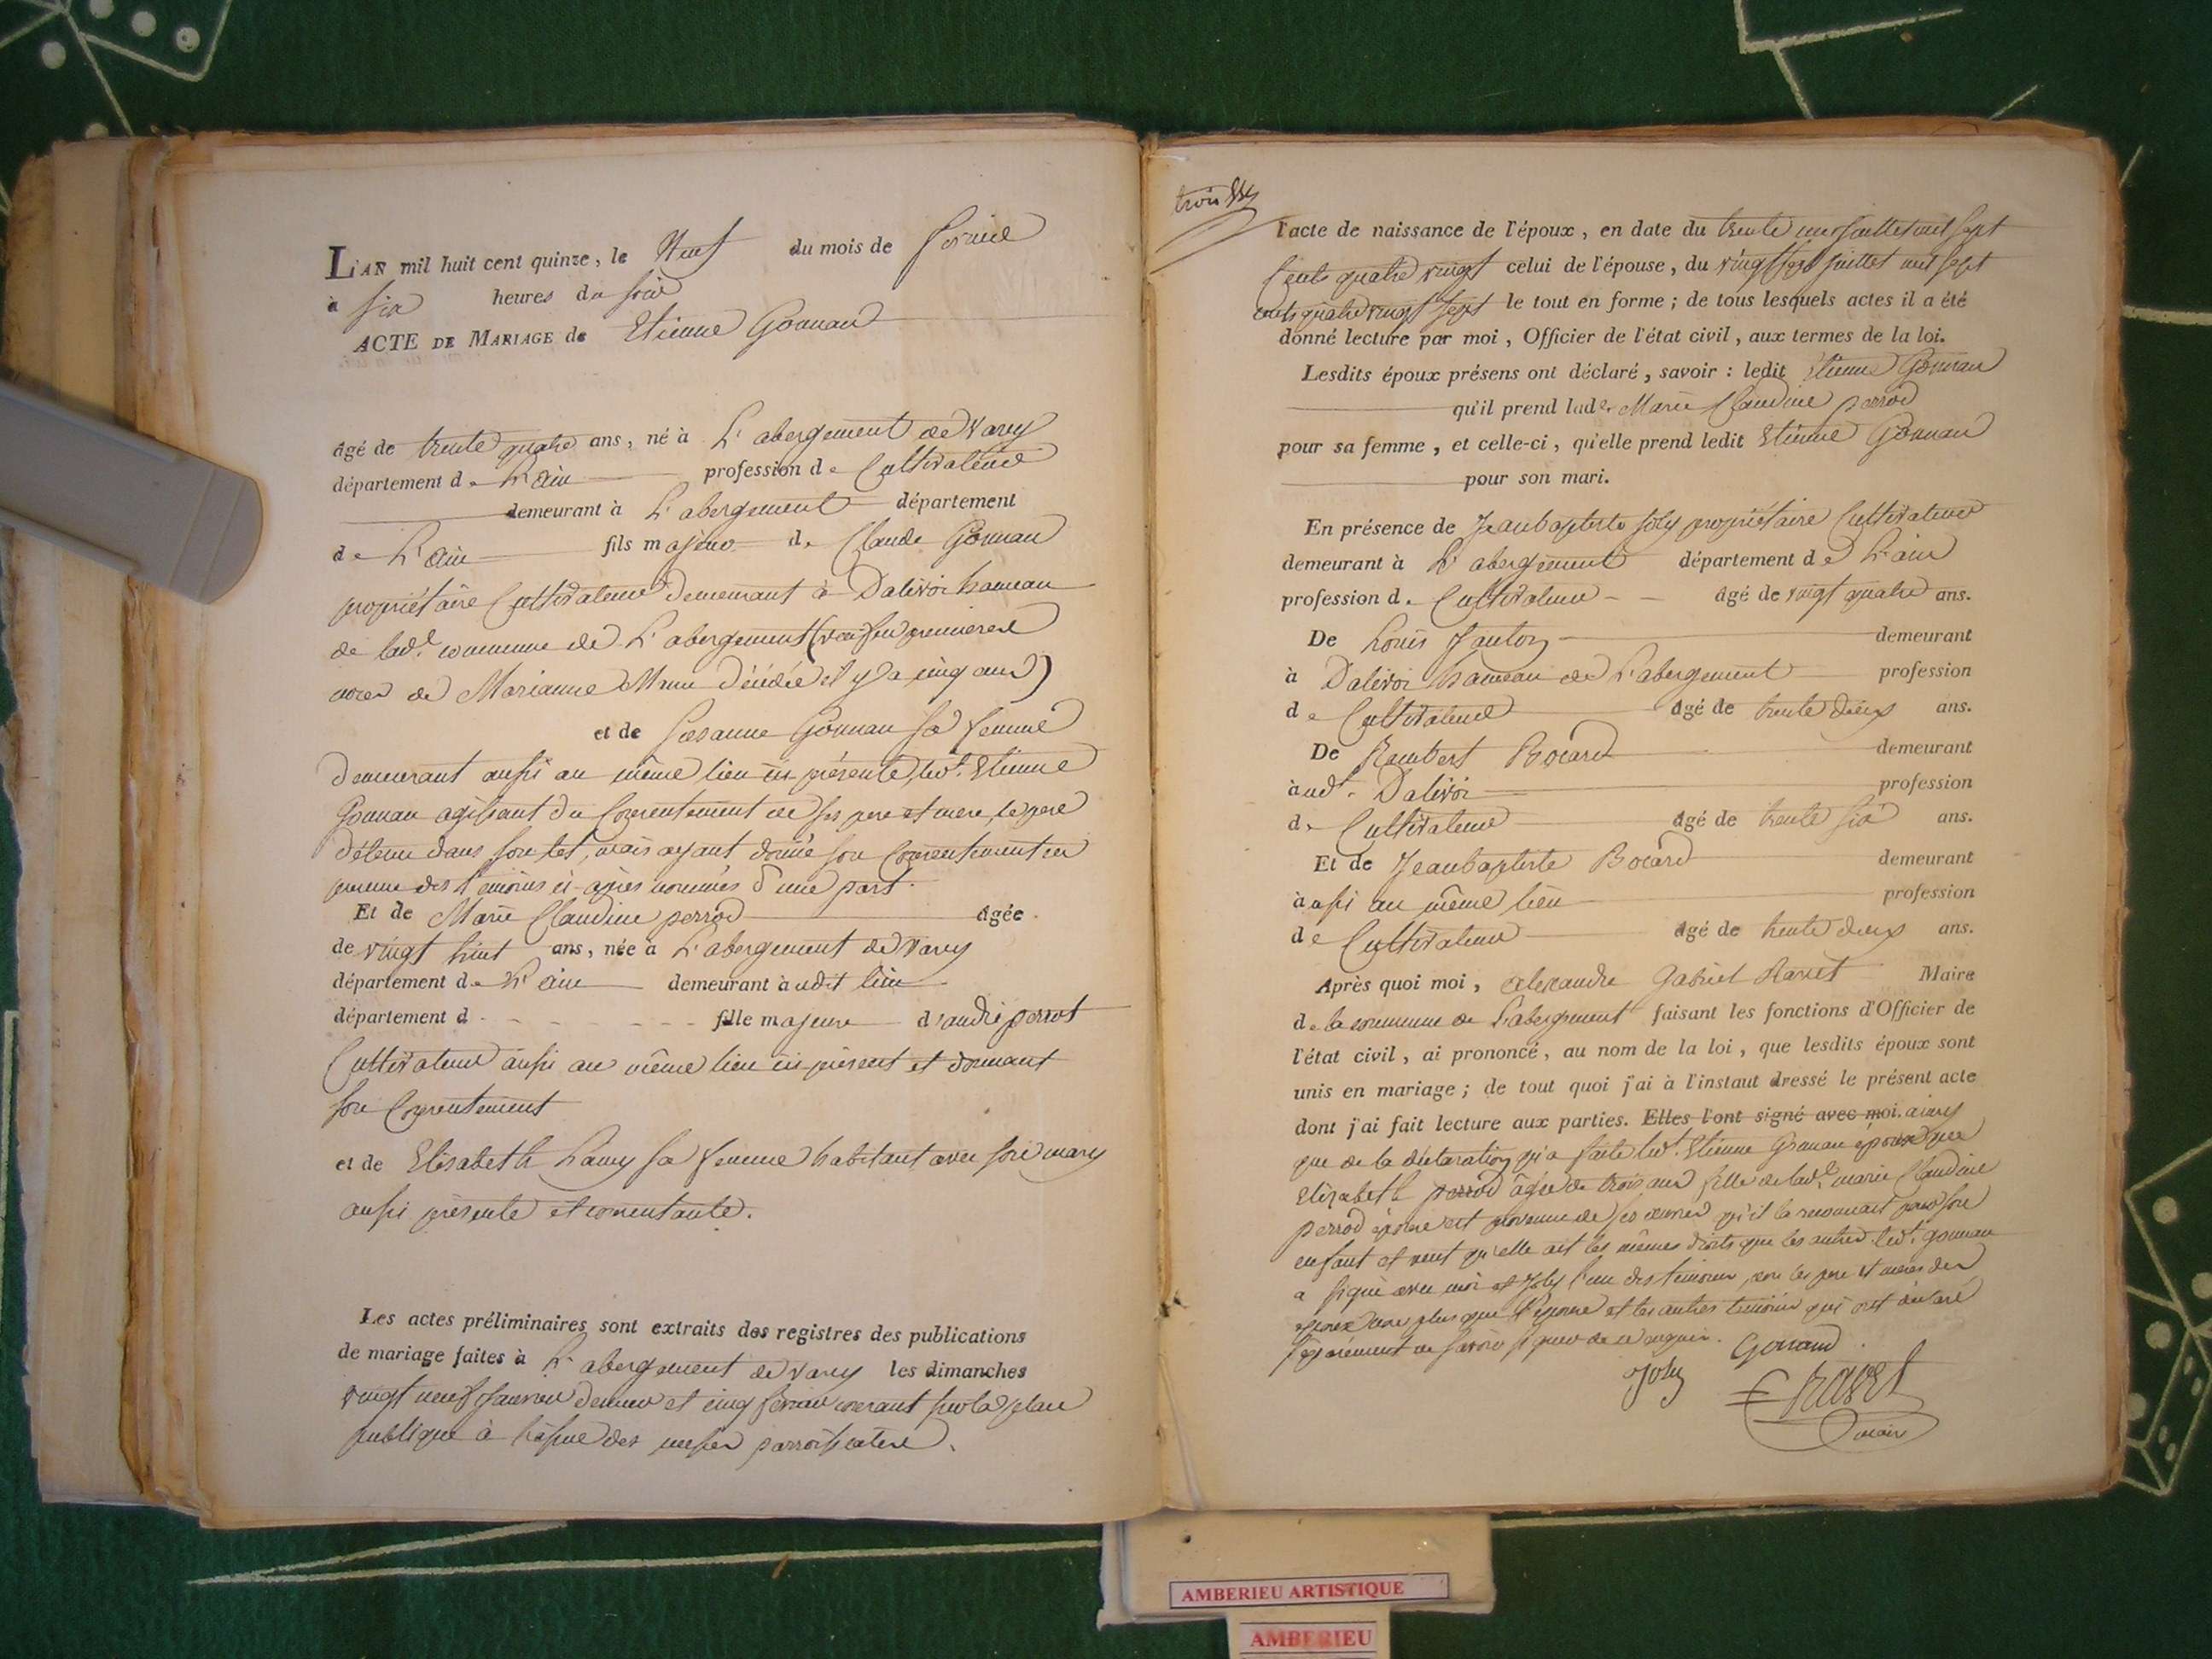 L'AN mil huit cent quinze, le Neuf du mois de fevrier
à six heures du soir
ACTE DE MARIAGE de Etienne Gonnan
âgé de trente quatre ans, né à L'abergement de Varey
département de L'ain profession de Cultivateur
demeurant à L'abergement département
de L'ain fils majeur de Claude Gonnan
propriétaire Cultivateur demeurant à Dalivoi hameau
de lad.e commune de L'abergement (veuf en premieres
noces de Marianne décédée il y a cinq ans)
et de Susanne Gonnan sa femme
demeurant aussi au même lieu ici présente, led.t Etienne
Gonnan agissant du Consentement de ses pere et mere, le pere
détenu dans son lit, mais ayant donné son Consentement en
presence des témoins ci-après nommés d'une part.
Et de Marie Claudine perrod âgée
de vingt huit ans, née à L'abergement de Varey
département de L'ain demeurant à udit lieu
département d fille majeure d'andré perrot
Cultivateur aussi au même lieu ici présent et donnant
son Consentement
et de Elisabeth Lamy sa femme habitant avec son mary
aussi présente et consentante.
Les actes préliminaires sont extraits des registres des publications
de mariage faites à L'abergement de Varey les dimanches
vingt neuf janvier dernier et cinq fevrier courant sur la place
publique à l'issue des messes parroissiales.
trois
l'acte de naissance de l'époux, en date du trente un juillet mil sept
Cents quatre vingt celui de l'épouse, du vingt sept juillet mil sept
cents quatre vingt sept le tout en forme; de tous lesquels actes il a été
donné lecture par moi, Officier de l'état civil, aux termes de la loi.
Lesdits époux présens ont déclaré, savoir: ledit Etienne Gonnan
qu'il prend lade. Marie Claudine perrod
pour sa femme, et celle-ci, qu'elle prend ledit Etienne Gonnan
pour son mari.
En présence de Jeanbaptiste Joly propriétaire Cultivateur
demeurant à L'abergement département de L'ain
profession de Cultivateur âgé de vingt quatre ans.
De Louis Janton demeurant
à Dalivoi hameau de L'abergement profession
de Cultivateur âgé de trente deux ans.
De Rambert Bocard demeurant
à ud.t Dalivoi profession
de Cultivateur âgé de trente six ans.
Et de Jeanbaptiste Bocard demeurant
à ussi au même lieu profession
de Cultivateur âgé de trente deux ans.
Après quoi moi, alexandre Gabriel Ravet Maire
de la commune de L'abergement faisant les fonctions d'Officier de
l'état civil, ai prononcé, au nom de la loi, que lesdits époux sont
unis en mariage; de tout quoi j'ai à l'instant dressé le présent acte
dont j'ai fait lecture aux parties. Elles l'ont signé avec moi. ainsy
que de la déclaration qu'a faite led.t Etienne Gonnan époux que
Elizabeth perrod âgée de trois ans fille de lad.e marie Claudine
perrod épouse est provenue de ses œuvres qu'il la reconnait pour son
enfant et veut qu'elle ait les mêmes droits que les autres. led.t gonnan
a signé avec moi et Joly l'un des témoins, non les pere et meres des
époux non plus que l'épouse et les autres temoins qui ont déclaré
séparément ne savoir signer de ce requis.
Gonnand
Joly
Ravet
maire
AMBERIEU ARTISTIQUE
AMBERIEU